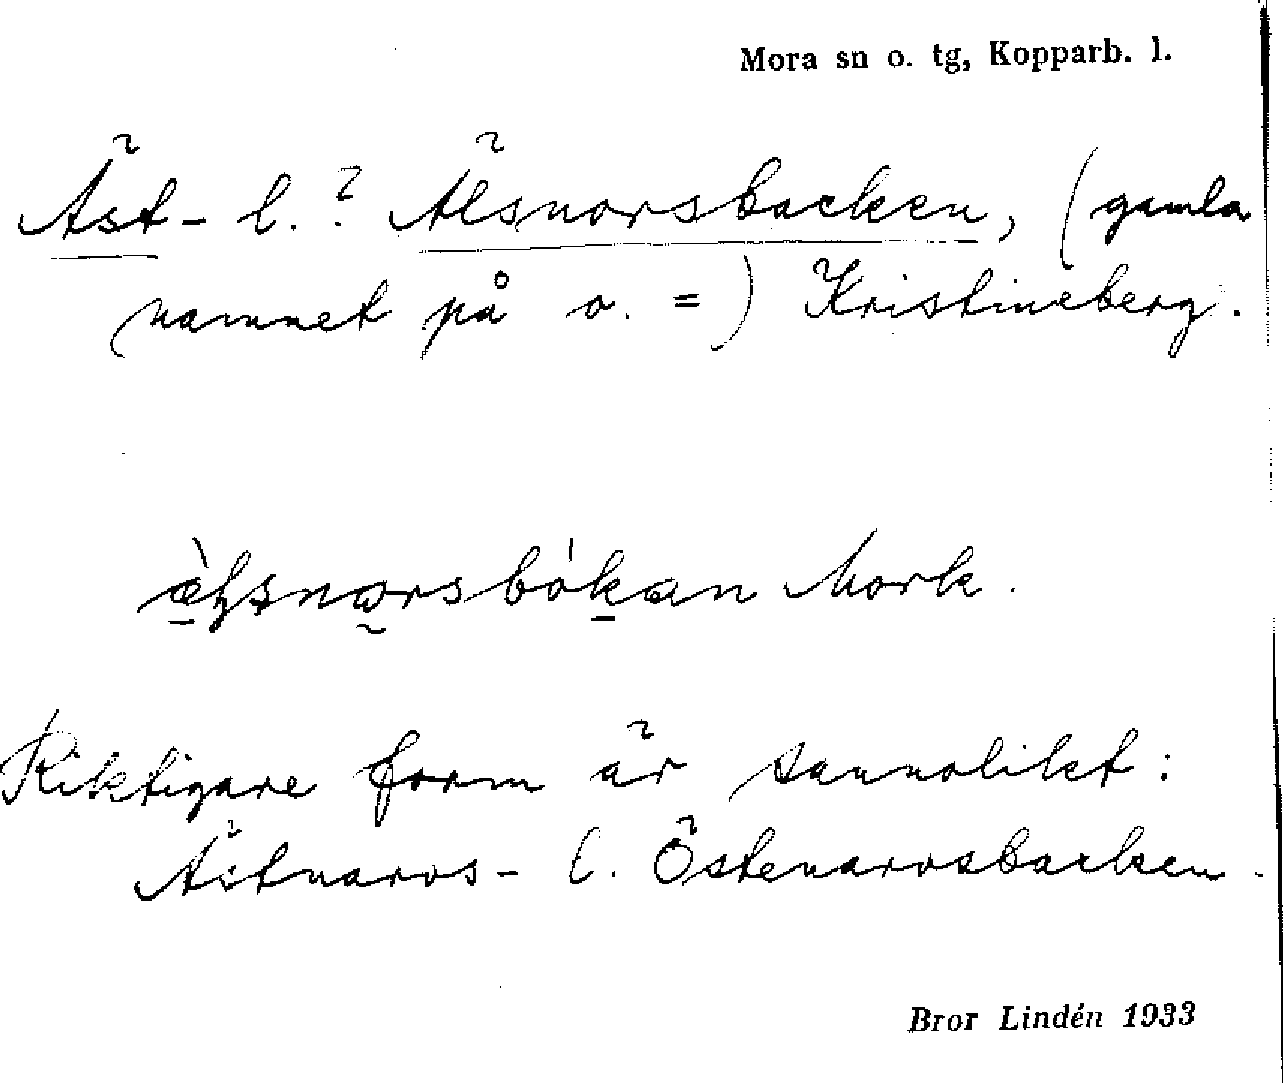 Mora sn o. tg, Kopparb. l.
Äst- l.? Älsnorsbacken, (gamla
namnet på o. =) Kristineberg.
Mork.
Riktigare form är sannolikt:
Ästnarvs- l. Östenarvsbacken.
Bror Lindén 1933